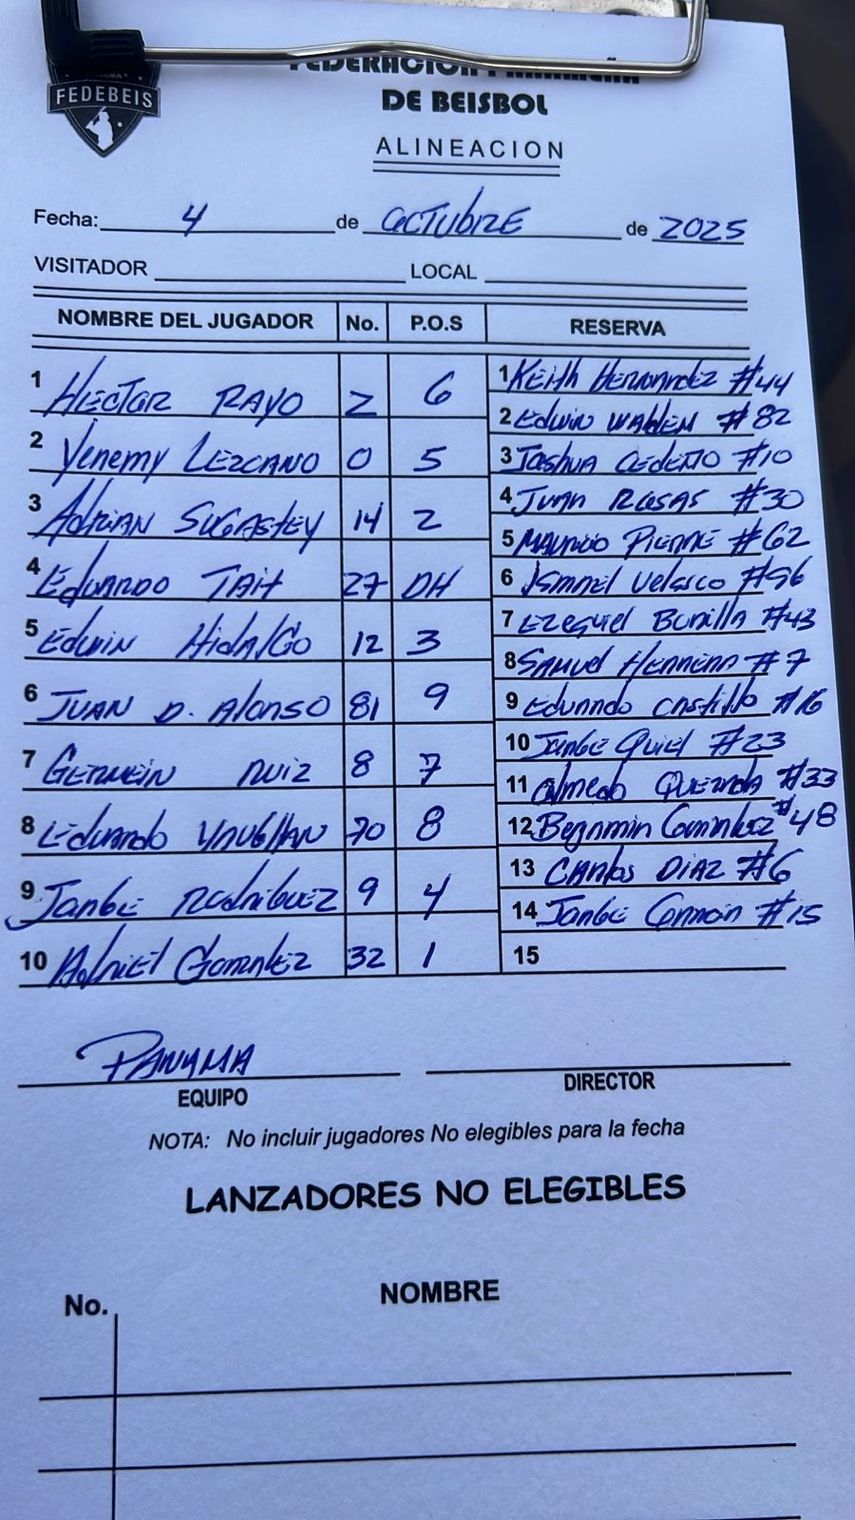 FEDEBEIS
FEDERACION PANAMEÑA
DE BEISBOL
ALINEACION
Fecha: 4 de OCTUBRE de 2025
VISITADOR LOCAL
NOMBRE DEL JUGADOR No. P.O.S RESERVA
1 HECTOR RAYO 2 6
2 Yenemy LEZCANO 0 5
3 Adrian SUGASTEY 14 2
4 Eduardo TAit 27 DH
5 Edwin HidalGo 12 3
6 JUAN D. Alonso 81 9
7 GERMEIN RUIZ 8 7
8 Eduardo VAUGHAN 70 8
9 JORGE RodRiGUEZ 9 4
10 AdRiEl GonzALEZ 32 1
1 KEith HERNANDEZ #44
2 Edwin WAldEN #82
3 JoshuA CEDEÑO #10
4 JUAN ROSAS #30
5 MAURICIO PIERRE #62
6 ISMAEL VELASCO #96
7 EZEquiEl BONillA #43
8 SAMUEl HERRERA #7
9 EduARdo CAStillo #16
10 JORGE QuiEl #23
11 Olmedo QUEZADA #33
12 BENJAMIN GonzALEZ #48
13 CARlos DiAZ #6
14 JORGE CORREA #15
15
PANAMA
EQUIPO DIRECTOR
NOTA: No incluir jugadores No elegibles para la fecha
LANZADORES NO ELEGIBLES
No. NOMBRE